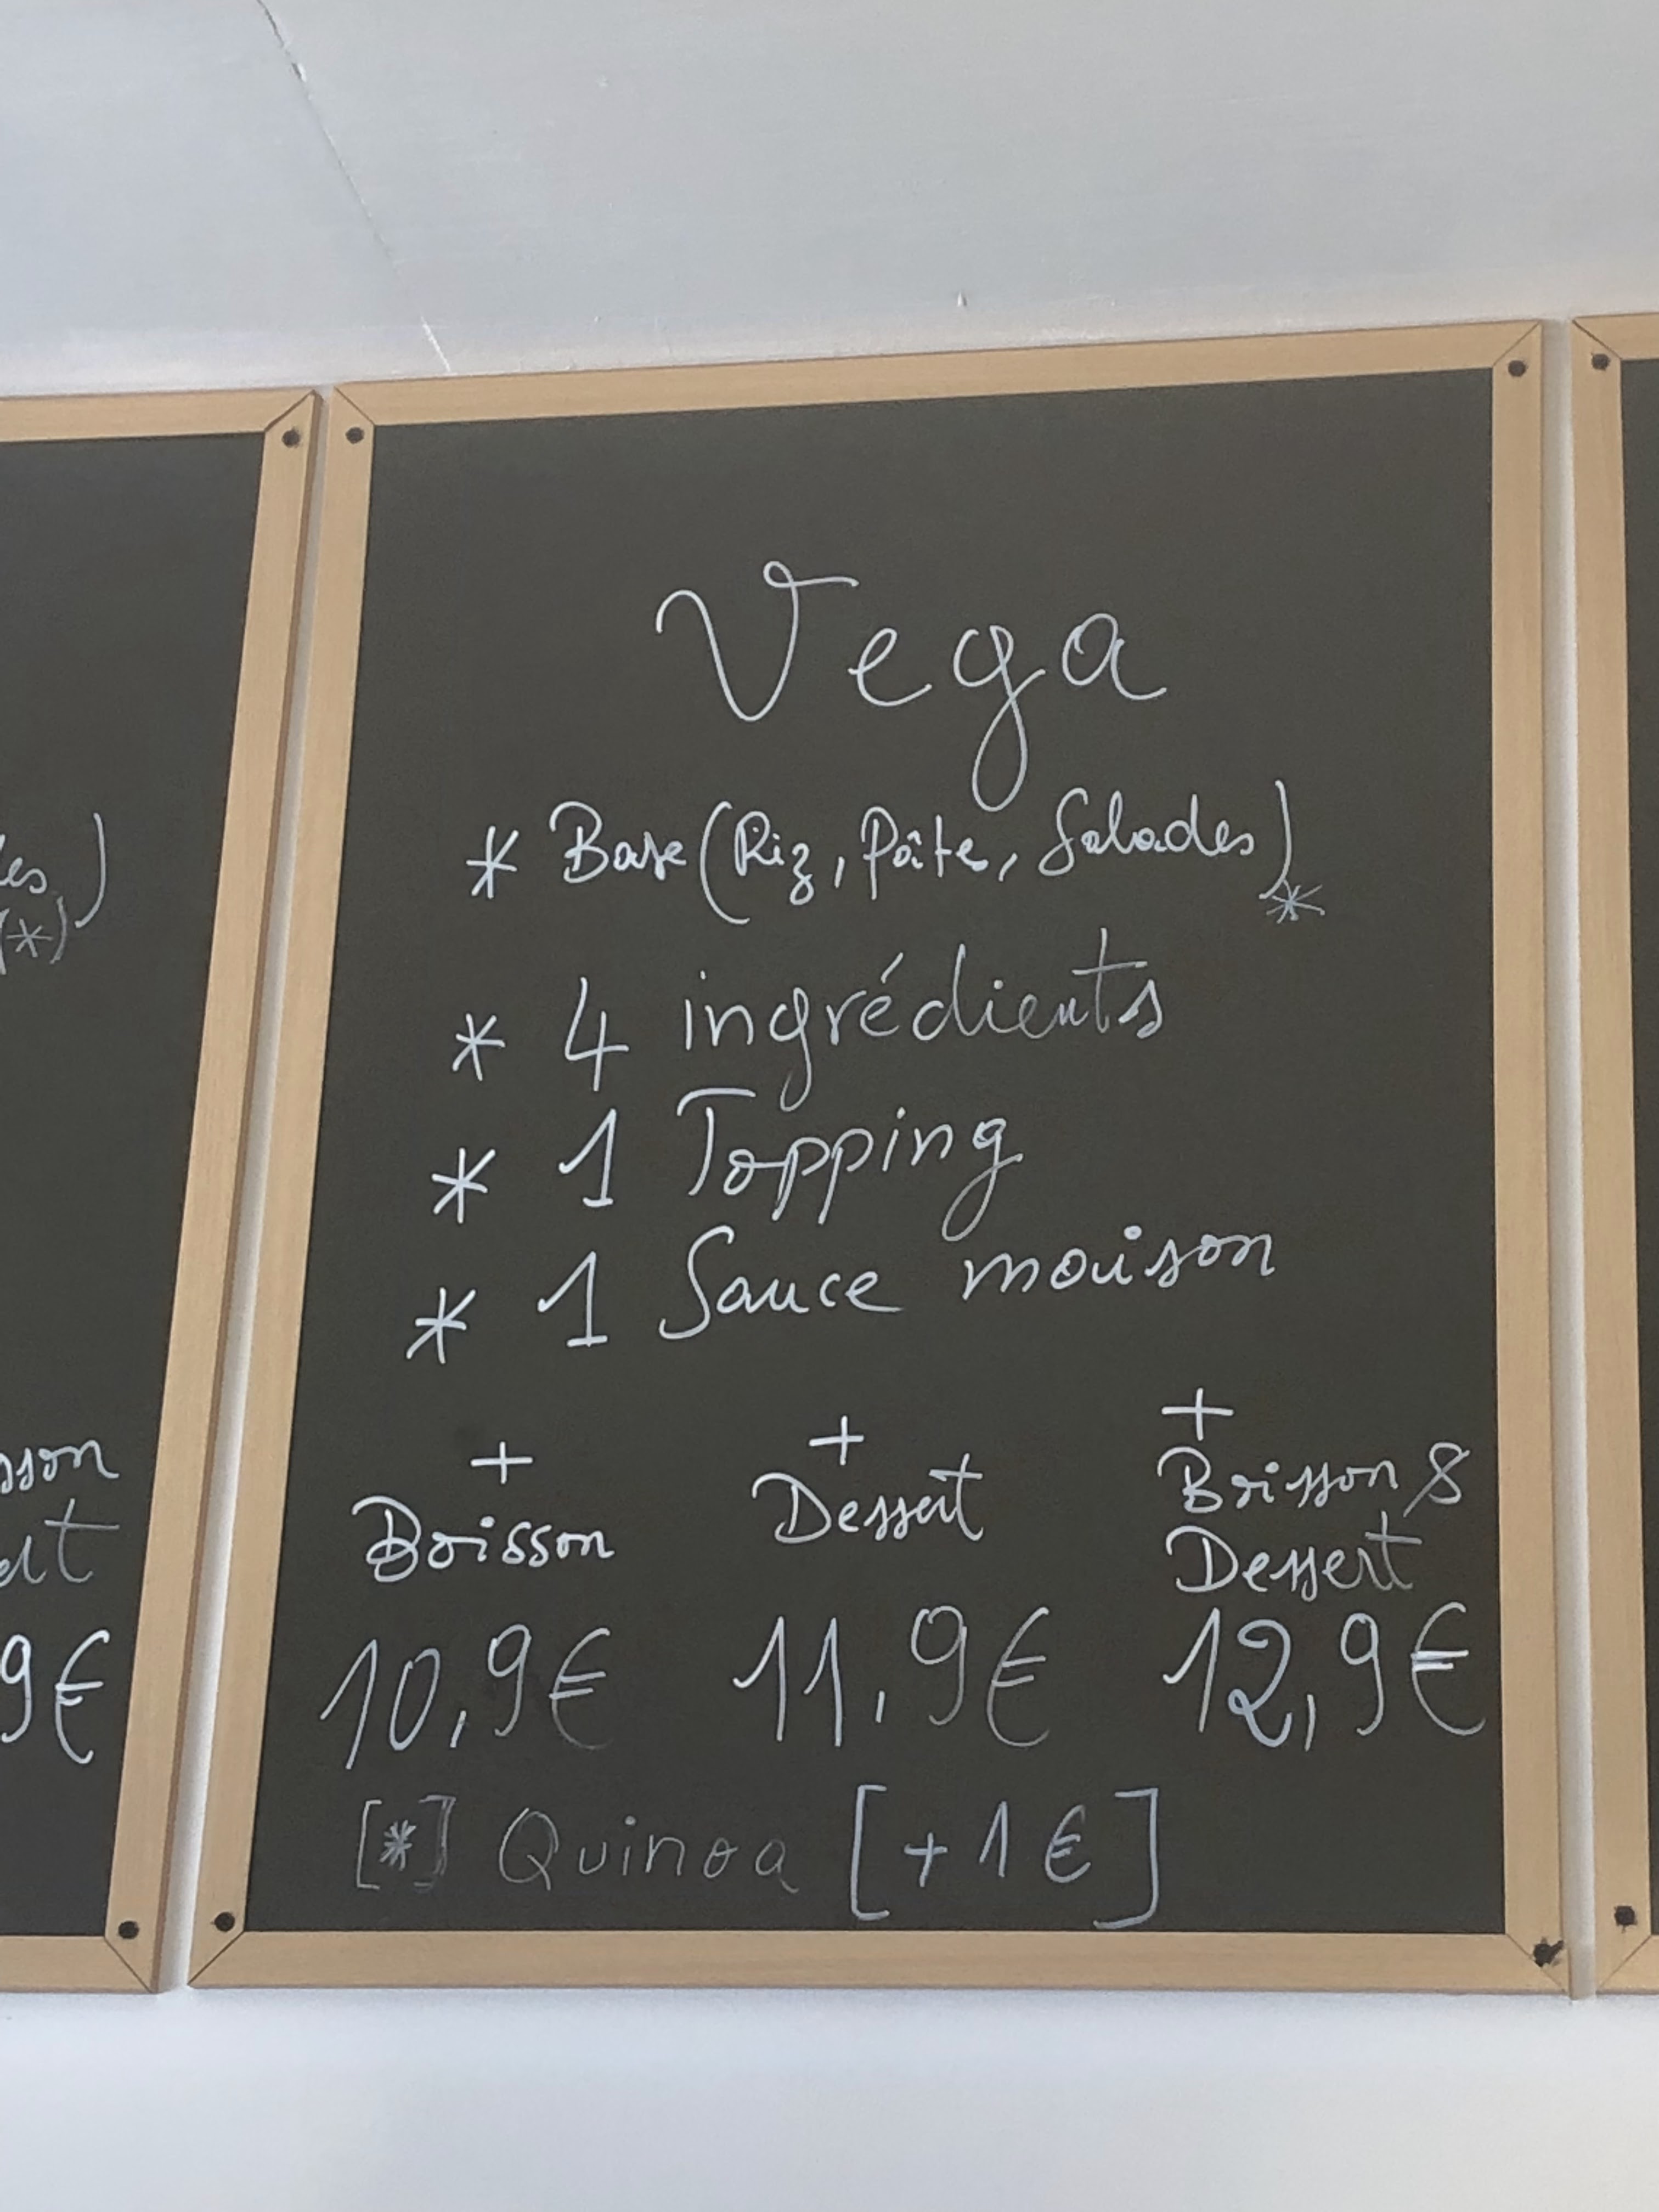 Vega
* Base (Riz, Pâte, Salades)*
* 4 ingrédients
* 1 Topping
* 1 Sauce maison
+ + +
Boisson Dessert Boisson &
Dessert
10,9€ 11,9€ 12,9€
[*] Quinoa [+1€]
les)
(*)
9€